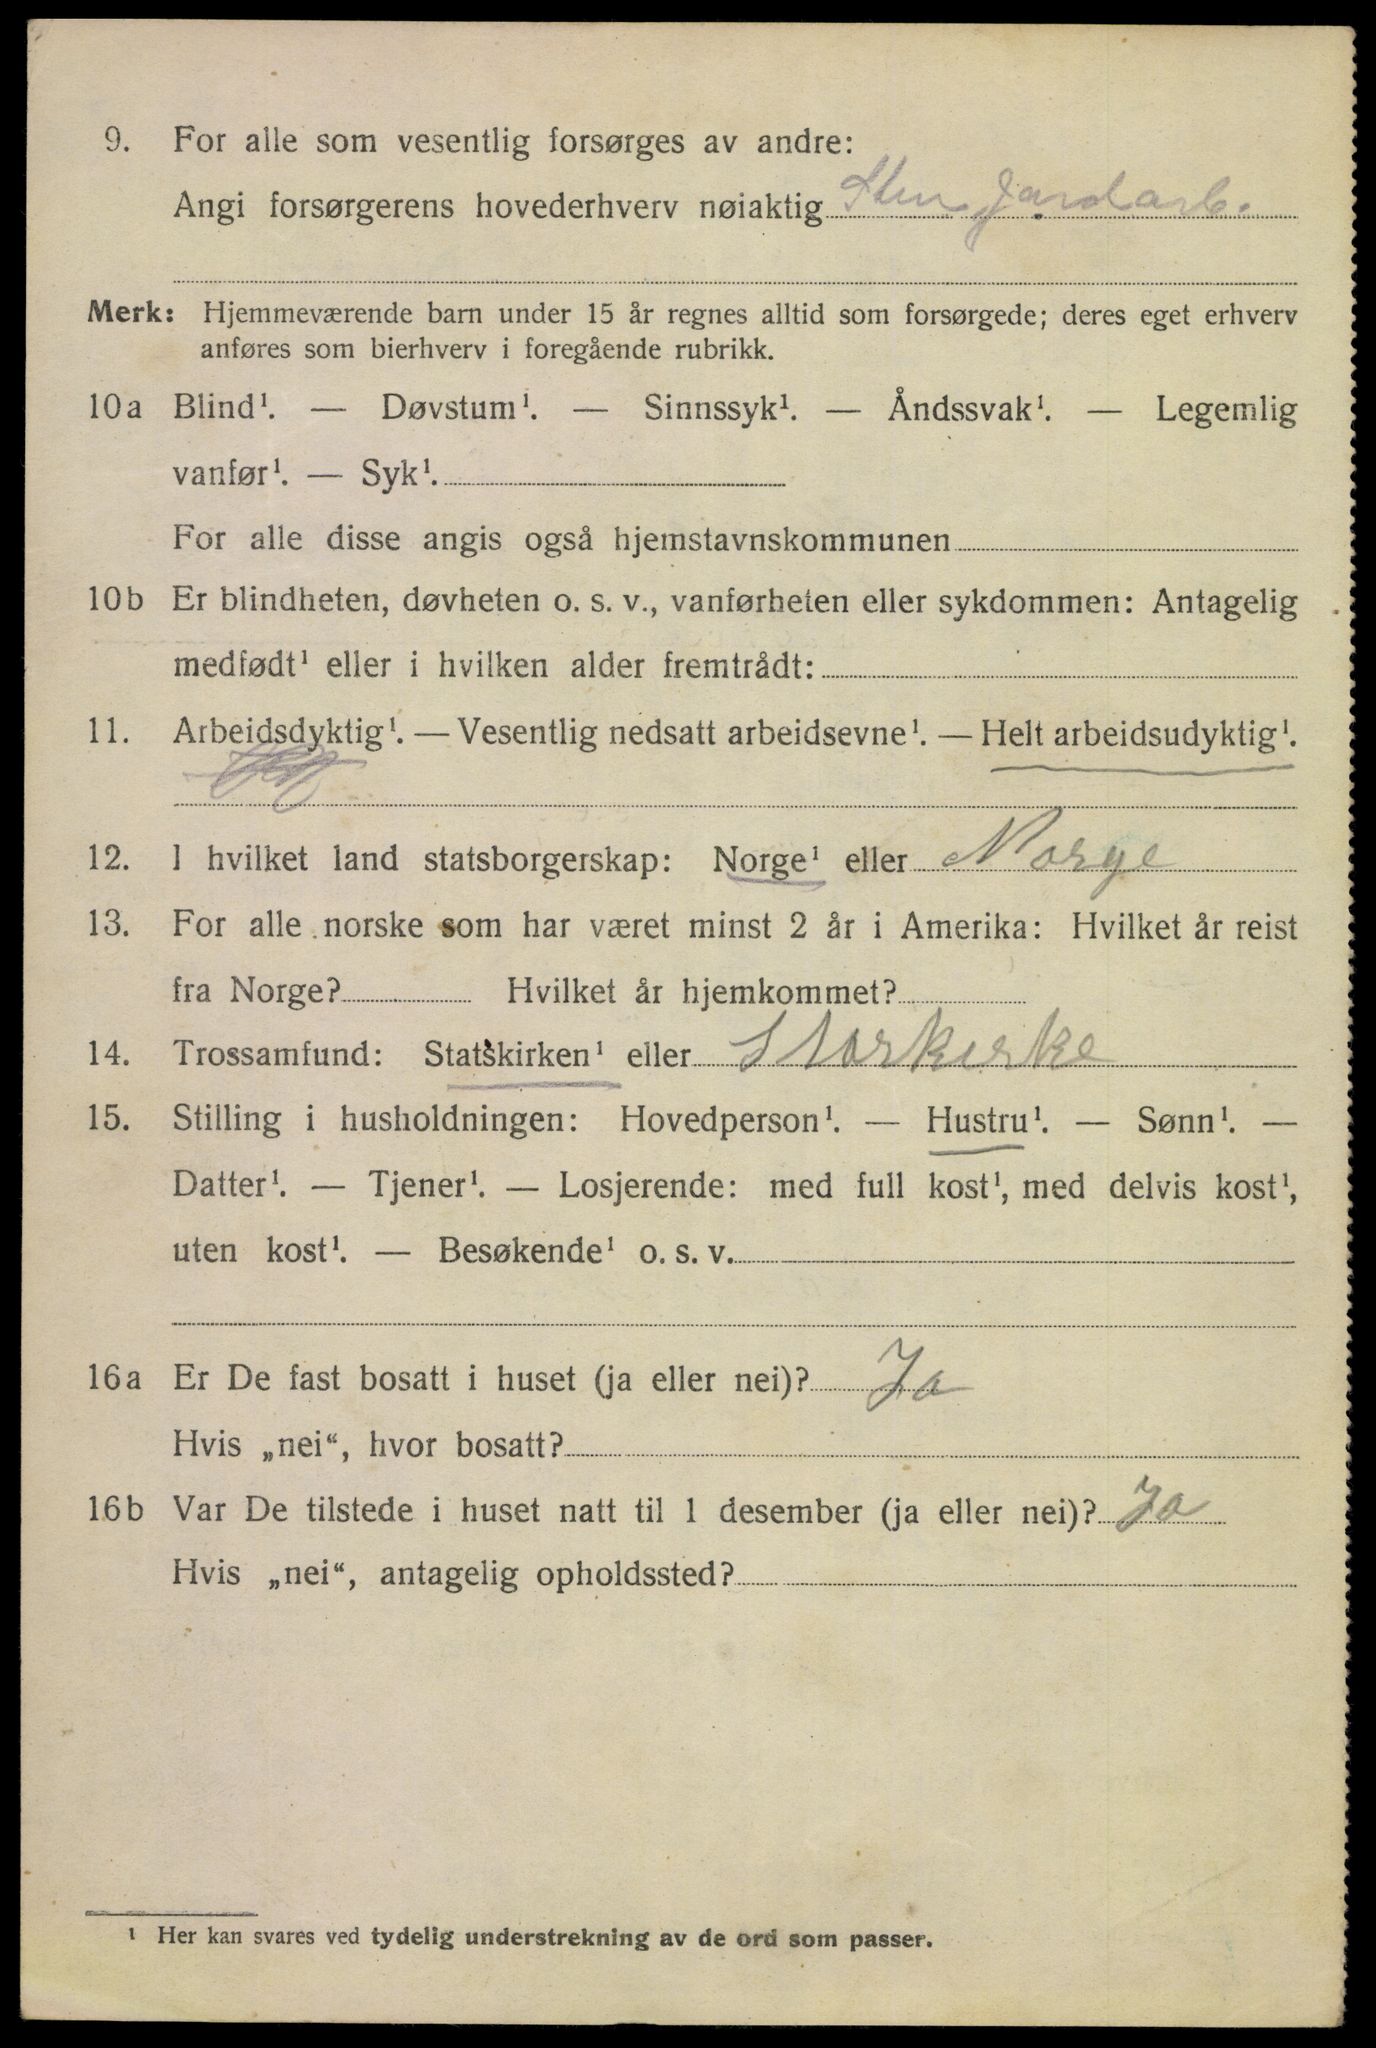 9. For alle som vesentlig forsørges av andre:
Angi forsørgerens hovederhverv nøiaktig Sten Jordarb.
Merk: Hjemmeværende barn under 15 år regnes alltid som forsørgede; deres eget erhverv
anføres som bierhverv i foregående rubrikk.
10a Blind¹. — Døvstum¹. — Sinnssyk¹. — Åndssvak¹. — Legemlig
vanfør¹. — Syk¹.
For alle disse angis også hjemstavnskommunen
10b Er blindheten, døvheten o. s. v., vanførheten eller sykdommen: Antagelig
medfødt¹ eller i hvilken alder fremtrådt:
11. Arbeidsdyktig¹. — Vesentlig nedsatt arbeidsevne¹. — Helt arbeidsudyktig¹.
12. I hvilket land statsborgerskap: Norge¹ eller Norge
13. For alle norske som har været minst 2 år i Amerika: Hvilket år reist
fra Norge? Hvilket år hjemkommet?
14. Trossamfund: Statskirken¹ eller Starkirke
15. Stilling i husholdningen: Hovedperson¹. — Hustru¹. — Sønn¹. —
Datter¹. — Tjener¹. — Losjerende: med full kost¹, med delvis kost¹,
uten kost¹. — Besøkende¹ o. s. v.
16a Er De fast bosatt i huset (ja eller nei)? Ja
Hvis „nei“, hvor bosatt?
16b Var De tilstede i huset natt til 1 desember (ja eller nei)? Ja
Hvis „nei“, antagelig opholdssted?
¹ Her kan svares ved tydelig understrekning av de ord som passer.